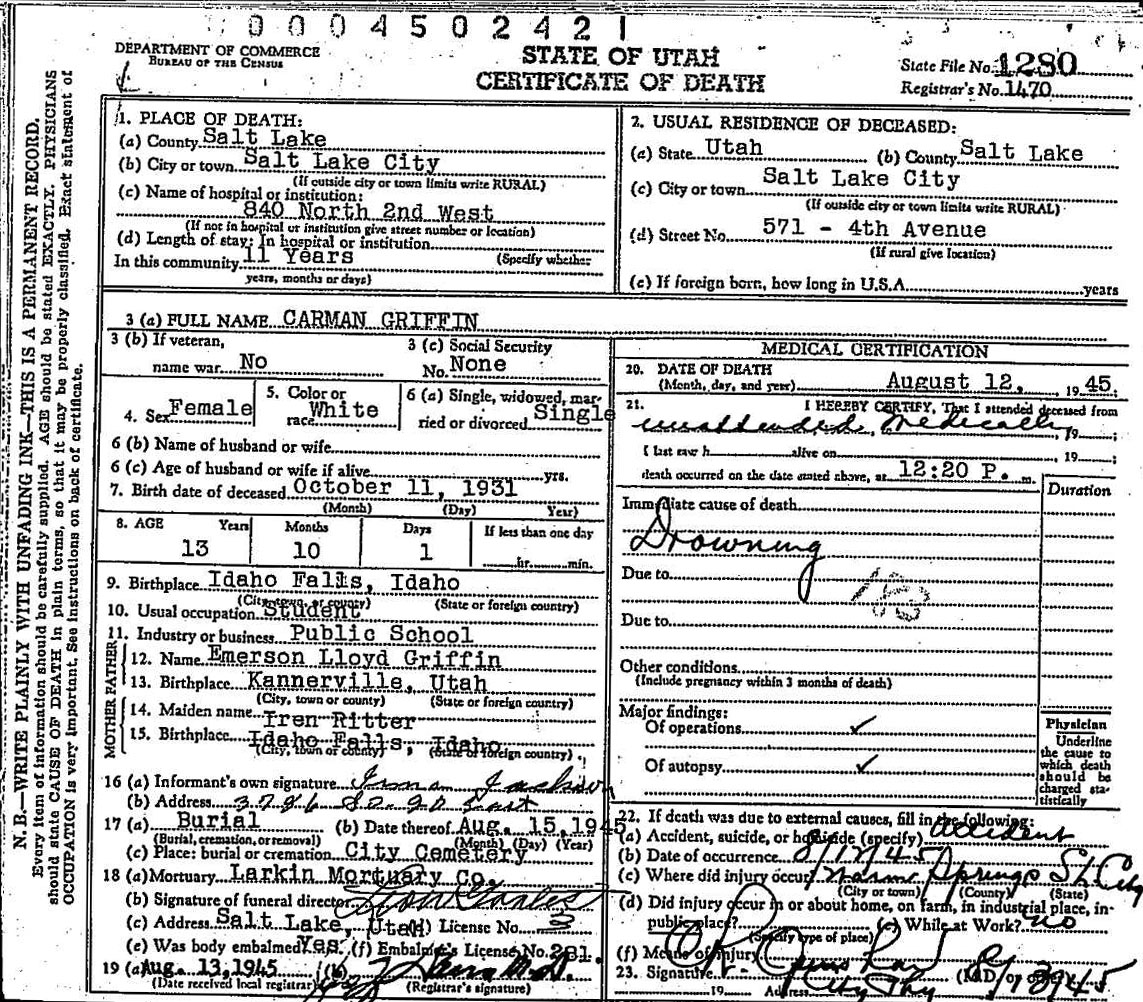 0004502421
DEPARTMENT OF COMMERCE
BUREAU OF THE CENSUS
STATE OF UTAH
CERTIFICATE OF DEATH
State File No. 1280
Registrar's No. 1470
N. B.—WRITE PLAINLY WITH UNFADING INK—THIS IS A PERMANENT RECORD.
Every item of information should be carefully supplied. AGE should be stated EXACTLY. PHYSICIANS
should state CAUSE OF DEATH in plain terms, so that it may be properly classified. Exact statement of
OCCUPATION is very important. See instructions on back of certificate.
1. PLACE OF DEATH:
(a) County Salt Lake
(b) City or town Salt Lake City
(If outside city or town limits write RURAL)
(c) Name of hospital or institution:
840 North 2nd West
(If not in hospital or institution give street number or location)
(d) Length of stay: In hospital or institution
In this community 11 Years (Specify whether
years, months or days)
2. USUAL RESIDENCE OF DECEASED:
(a) State Utah (b) County Salt Lake
(c) City or town Salt Lake City
(If outside city or town limits write RURAL)
(d) Street No. 571 - 4th Avenue
(If rural give location)
(e) If foreign born, how long in U.S.A. years
3 (a) FULL NAME CARMAN GRIFFIN
3 (b) If veteran, name war No
3 (c) Social Security No. None
4. Sex Female
5. Color or race White
6 (a) Single, widowed, married or divorced Single
6 (b) Name of husband or wife
6 (c) Age of husband or wife if alive yrs.
7. Birth date of deceased October 11, 1931
(Month) (Day) Year)
8. AGE Years Months Days If less than one day
13 10 1 hr. min.
9. Birthplace Idaho Falls, Idaho
(City, town, or county) (State or foreign country)
10. Usual occupation Student
11. Industry or business Public School
FATHER
12. Name Emerson Lloyd Griffin
13. Birthplace Kannerville, Utah
(City, town or county) (State or foreign country)
MOTHER
14. Maiden name Iren Ritter
15. Birthplace Idaho Falls, Idaho
(City, town or county) (State or foreign country)
16 (a) Informant's own signature Irma Jackson
(b) Address 3796 So. 20 East
17 (a) Burial (b) Date thereof Aug. 15, 1945
(Burial, cremation, or removal) (Month) (Day) (Year)
(c) Place: burial or cremation City Cemetery
18 (a) Mortuary Larkin Mortuary Co.
(b) Signature of funeral director
(c) Address Salt Lake, Utah (d) License No. 3
(e) Was body embalmed Yes. (f) Embalmer's License No. 281.
19 (a) Aug. 13, 1945 (b)
(Date received local registrar) (Registrar's signature)
MEDICAL CERTIFICATION
20. DATE OF DEATH
(Month, day, and year) August 12, 1945.
21. I HEREBY CERTIFY, That I attended deceased from
unattended medically, 19 ;
I last saw h alive on , 19 ;
death occurred on the date stated above, at 12:20 P. m.
Duration
Immediate cause of death
Drowning
183
Due to
Due to
Other conditions
(Include pregnancy within 3 months of death)
Major findings:
Of operations ✓
Of autopsy ✓
Physician
Underline
the cause to
which death
should be
charged statistically
22. If death was due to external causes, fill in the following:
(a) Accident, suicide, or homicide (specify) accident
(b) Date of occurrence 8/12/45
(c) Where did injury occur? Warm Springs SL City
(City or town) (County) (State)
(d) Did injury occur in or about home, on farm, in industrial place, in
public place? (e) While at Work? no
(Specify type of place)
(f) Means of injury
23. Signature (M.D. or other)
19 Address City Phy